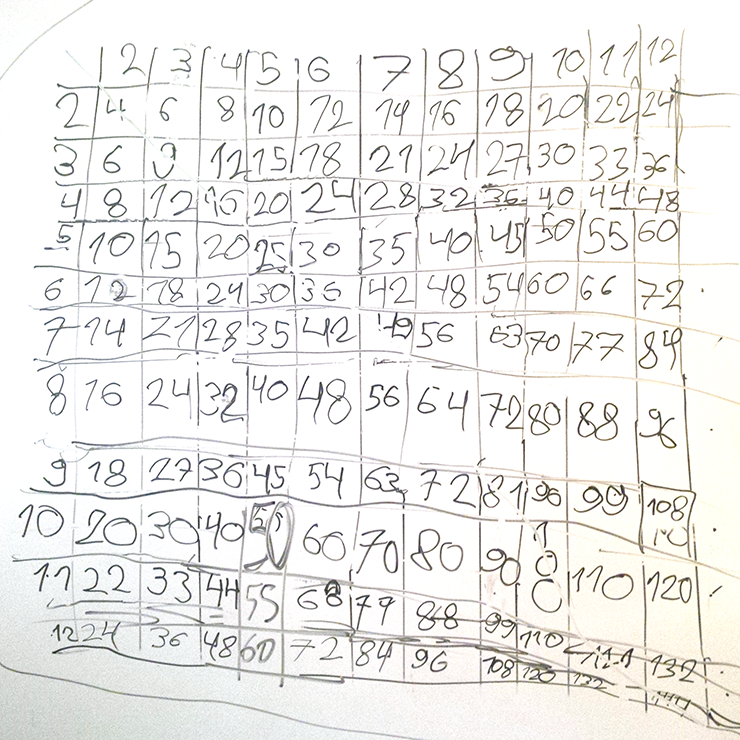 2 3 4 5 6 7 8 9 10 11 12
2 4 6 8 10 12 14 16 18 20 22 24
3 6 9 12 15 18 21 24 27 30 33 36
4 8 12 16 20 24 28 32 36 40 44 48
5 10 15 20 25 30 35 40 45 50 55 60
6 12 18 24 30 36 42 48 54 60 66 72
7 14 21 28 35 42 49 56 63 70 77 84
8 16 24 32 40 48 56 64 72 80 88 96
9 18 27 36 45 54 63 72 81 90 99 108
10 20 30 40 50 60 70 80 90 100 110 120
11 22 33 44 55 68 77 88 99 110 121 132
12 24 36 48 60 72 84 96 108 120 132